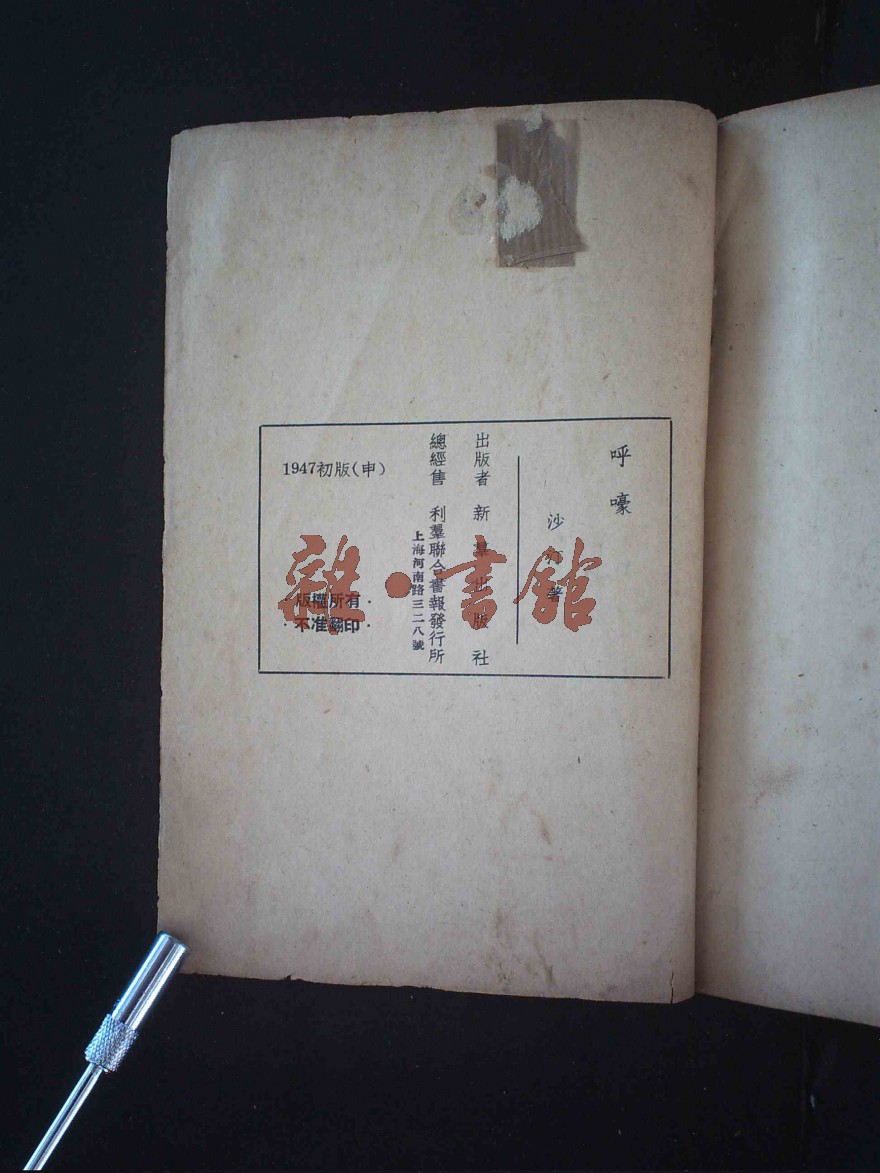 呼嚎
沙汀著
出版者 新羣出版社
總經售 利羣聯合書報發行所
上海河南路三二八號
1947初版(申)
·版權所有·
·不准翻印·
雜·書館